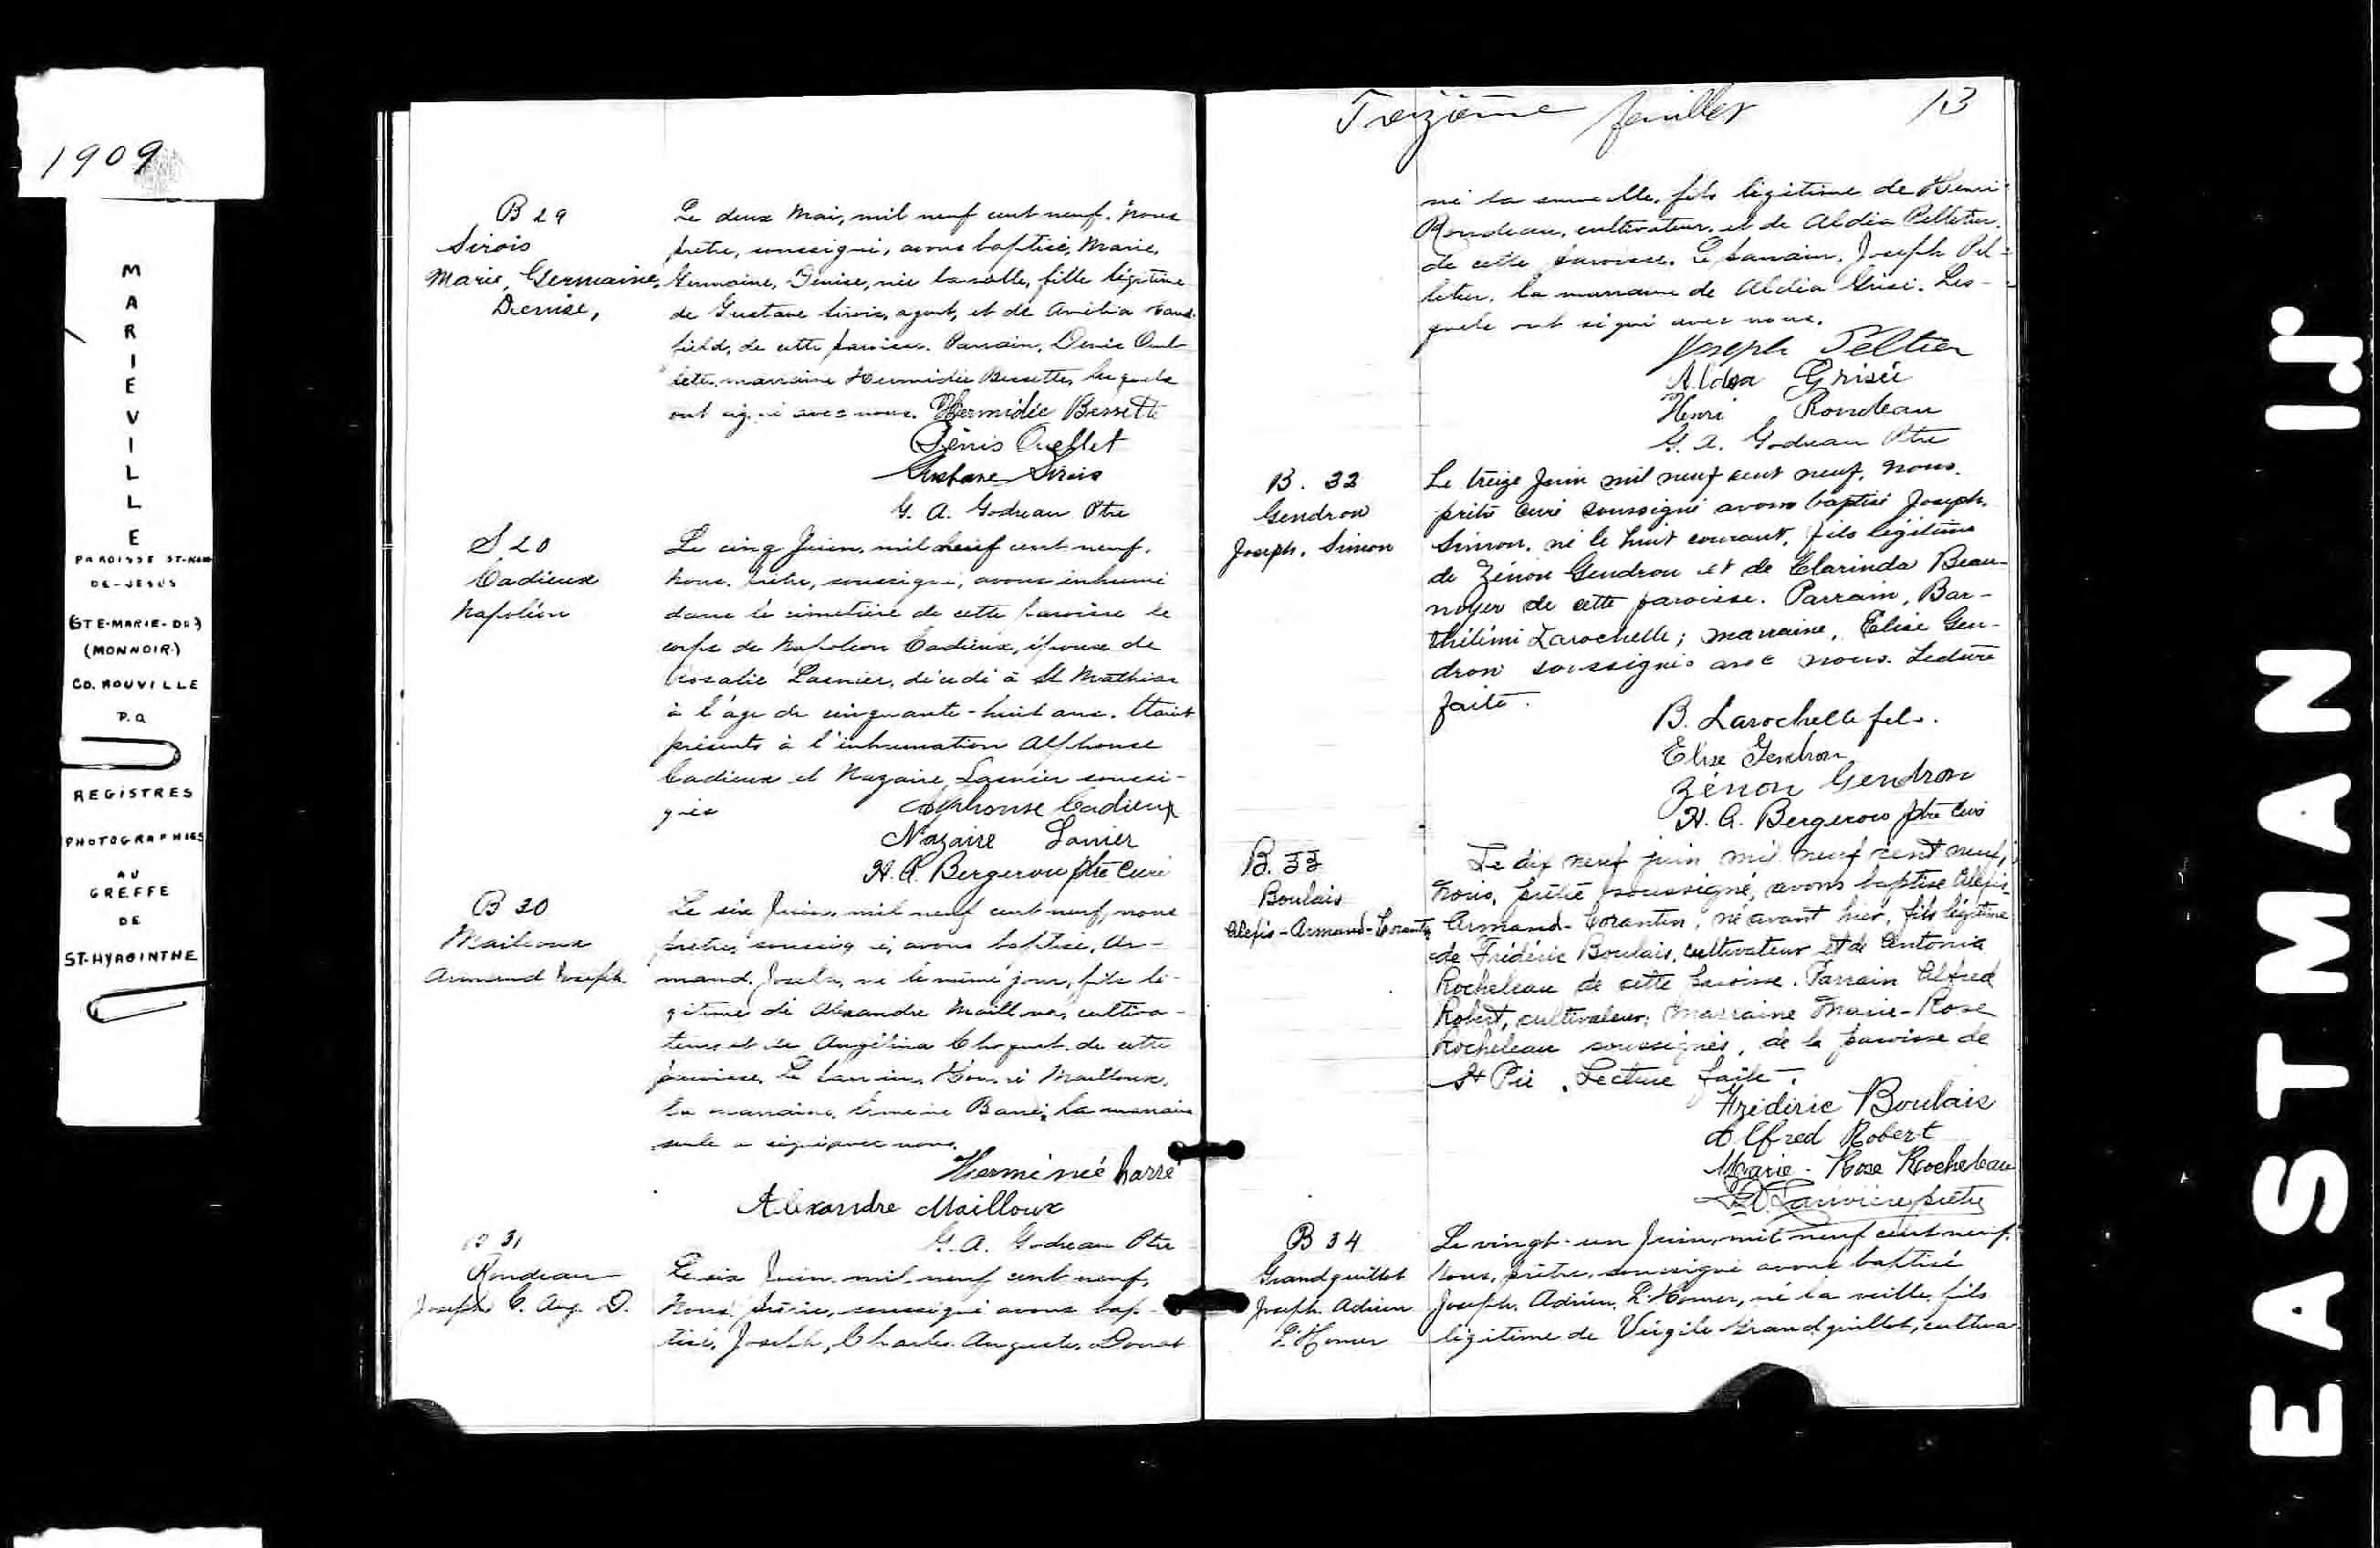 1909
MARIEVILLE
PAROISSE ST-NOM
DE-JESUS
(STE-MARIE-DE)
(MONNOIR)
CO. ROUVILLE
P.Q
REGISTRES
PHOTOGRAPHIES
AU
GREFFE
DE
ST-HYACINTHE
B 29
Sirois
Marie, Germaine,
Denise,
Le deux Mai, mil neuf cent neuf. Nous
prêtre, soussigné, avons baptisé, Marie,
Germaine, Denise, née la veille, fille légitime
de Gustave Sirois, agent, et de Amélia
field, de cette paroisse. Parrain, Denis Ouel-
lette, marraine Hermidée Bessette, lesquels
ont signé avec nous. Hermidée Bessette
Dénis Ouellet
Gustave Sirois
G. A. Godreau Ptre
S 20
Cadieux
Napoléon
Le cinq Juin, mil neuf cent neuf.
Nous, prêtre, soussigné, avons inhumé
dans le cimetière de cette paroisse le
corps de Napoléon Cadieux, époux de
Rosalie Lasnier, décédé à St Mathias
à l'âge de cinquante-huit ans. Étaient
présents à l'inhumation Alphonse
Cadieux et Nazaire Lasnier soussi-
gnés Alphonse Cadieux
Nazaire Lanier
H. A. Bergeron ptre curé
B 30
Mailloux
Armand Joseph
Le six Juin, mil neuf cent neuf, nous
prêtre, soussigné, avons baptisé, Ar-
mand, Joseph, né le même jour, fils lé-
gitime de Alexandre Mailloux, cultiva-
teur et de Angélina Choquet de cette
paroisse. Le parrain, Henri Mailloux,
la marraine, Barré; la marraine
seule a signé avec nous.
Herminé barré
Alexandre Mailloux
G. A. Godreau Ptre
B 31
Rondeau
Joseph C. Aug. D.
Le six Juin, mil neuf cent neuf,
Nous, prêtre, soussigné avons bap-
tisé, Joseph, Charles Auguste, Donat
Treizième feuillet 13
né la veille, fils légitime de Henri
Rondeau, cultivateur, et de Aldéa Pelletier,
de cette paroisse. Le parrain, Joseph Pel-
letier, la marraine de Aldéa Grisé. Les-
quels ont signé avec nous.
Joseph Peltier
Aldea Grisée
Henri Rondeau
G. A. Godreau Ptre
B. 32
Gendron
Joseph, Simon
Le treize Juin mil neuf cent neuf, nous.
prêtre curé soussigné avons baptisé Joseph,
Simon, né le huit courant, fils légitime
de Zénon Gendron et de Clarinda Beau-
noyer de cette paroisse. Parrain, Bar-
thélémi Larochelle; marraine, Elise Gen-
dron soussignés avec nous. Lecture
faite.
B. Larochelle fils.
Elise Gendron
Zénon Gendron
H. A. Bergeron ptre curé
B. 33
Boulais
Alexis-Armand-Corantin
Le dix neuf juin mil neuf cent neuf,
nous, prêtre soussigné, avons baptisé Alexis-
Armand-Corantin, né avant hier, fils légitime
de Frédéric Boulais, cultivateur et de Antonia
Rocheleau de cette paroisse. Parrain Alfred
Robert, cultivateur; marraine Marie-Rose
Rocheleau soussignés, de la paroisse de
St Pie. Lecture faite.
Frédéric Boulais
Alfred Robert
Marie-Rose Rocheleau
Larivière prêtre
B 34
Grandguillot
Joseph Adrien
L'Homer
Le vingt-un Juin, mil neuf cent neuf.
Nous, prêtre, soussigné avons baptisé
Joseph, Adrien, L'Homer, né la veille, fils
légitime de Virgile Grandguillot, cultiva-
EASTMAN